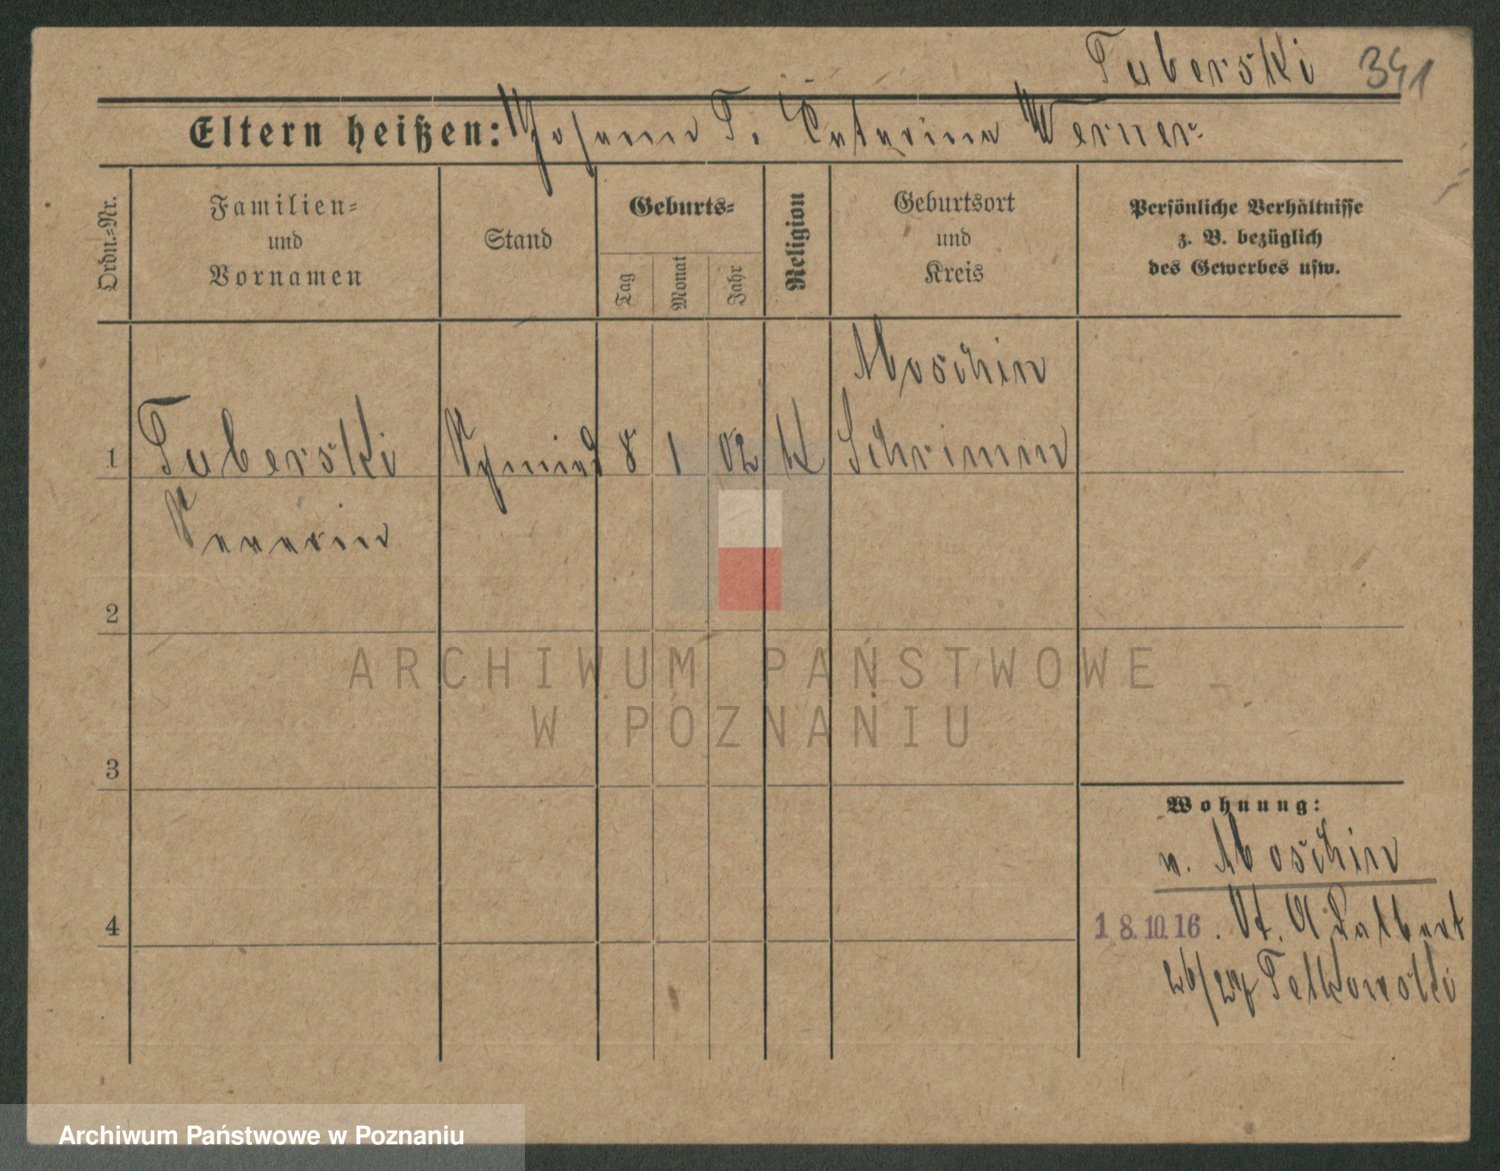 Tuberski 341
Eltern heißen: Johann T. Catarina Werner
Ordn.-Nr.
Familien- und Vornamen
Stand
Geburts-
Tag
Monat
Jahr
Religion
Geburtsort und Kreis
Persönliche Verhältnisse
z. B. bezüglich
des Gewerbes usw.
Moschin
1 Tuberski 8 1 02 K Schrimm
Severin
2
ARCHIWUM PAŃSTWOWE
W POZNANIU
3
Wohnung:
v. Moschin
4
18.10.16. St. Adalbert
26/27 Telkowski
Archiwum Państwowe w Poznaniu